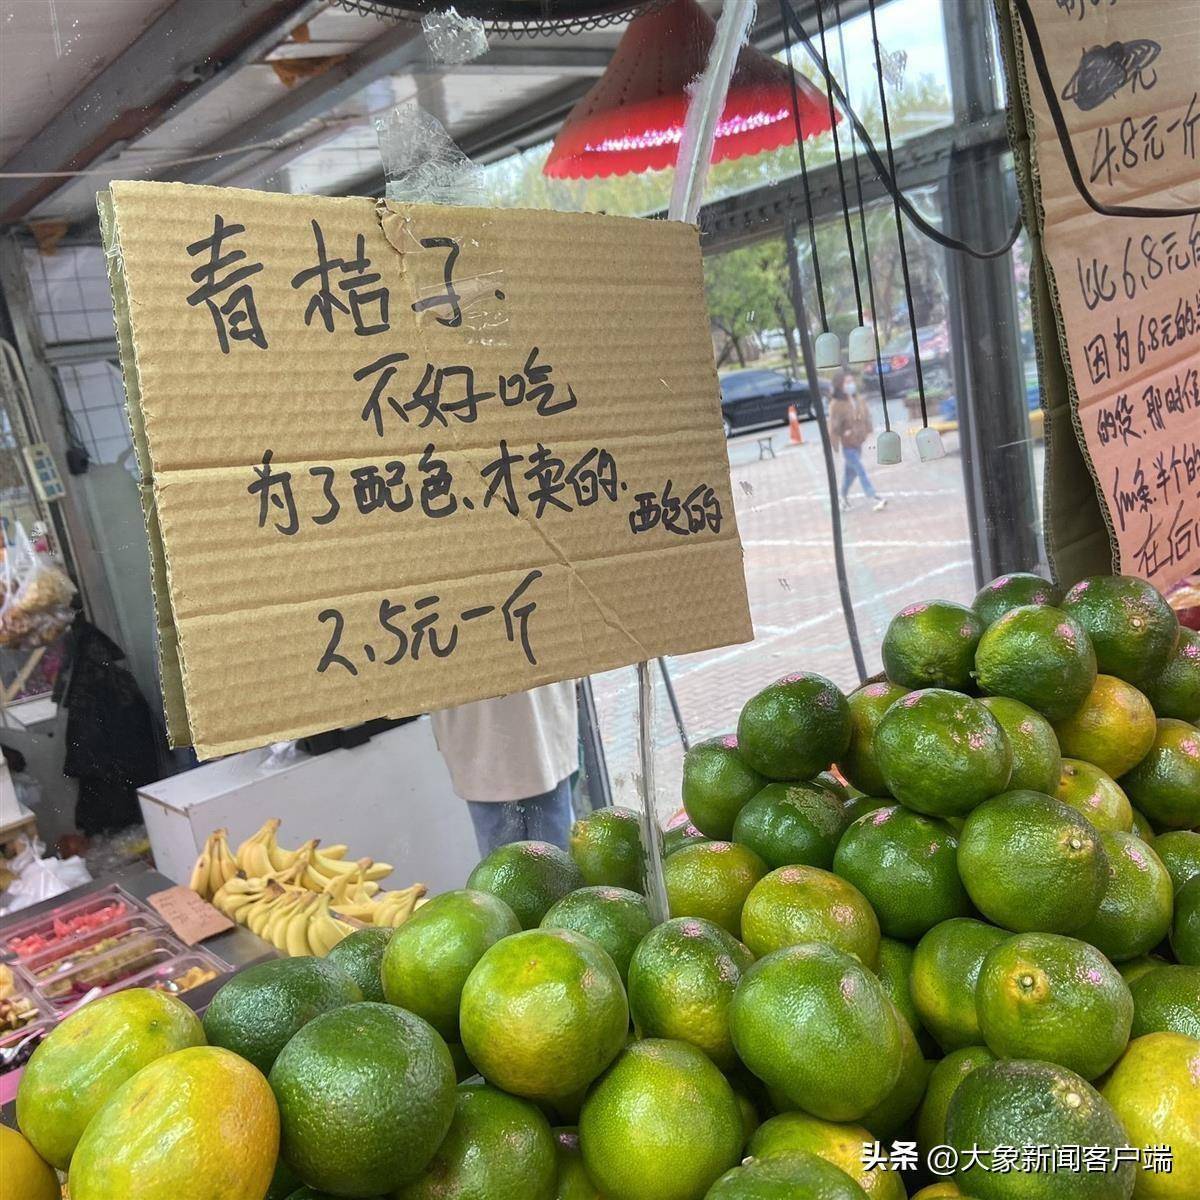 青桔子.
不好吃
为了配色、才卖的.
酸的
2.5元一斤
元
4.8元一斤
比6.8元
因为6.8元的
的货.那时候
半个的
头条 @大象新闻客户端